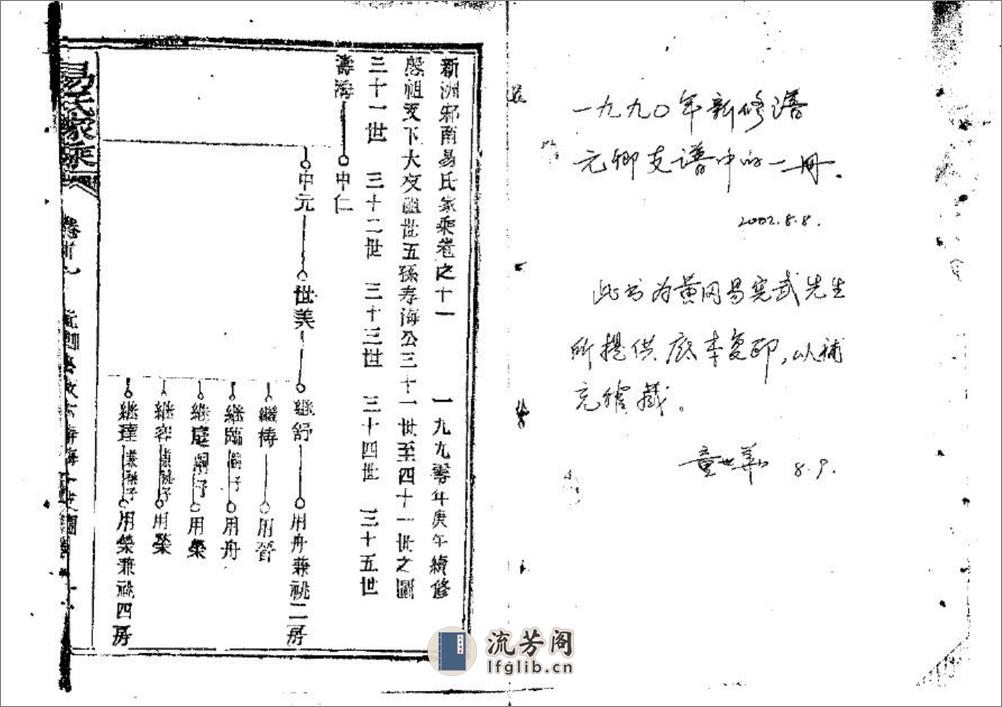 一九九〇年新修谱
元卿支谱中的一册.
2002.8.8.
此书为黄冈易宪武先生
所提供底本复印,以补
充馆藏。
童世華 8.9.
新洲邾南易氏家乘卷之十一 一九九零年庚午續修
殷祖支下大夜祖世五孫寿海公三十一世至四十一世之圖
三十一世 三十二世 三十三世 三十四世 三十五世
壽海 中仁
中元 世美 繼舒 用舟兼祧二房
繼傳 用晉
繼臨 嗣子 用舟
繼庭 嗣子 用榮
繼容 兼祧子 用榮
繼達 兼祧子 用榮兼祧四房
易氏家乘
流芳阁
lfglib.cn